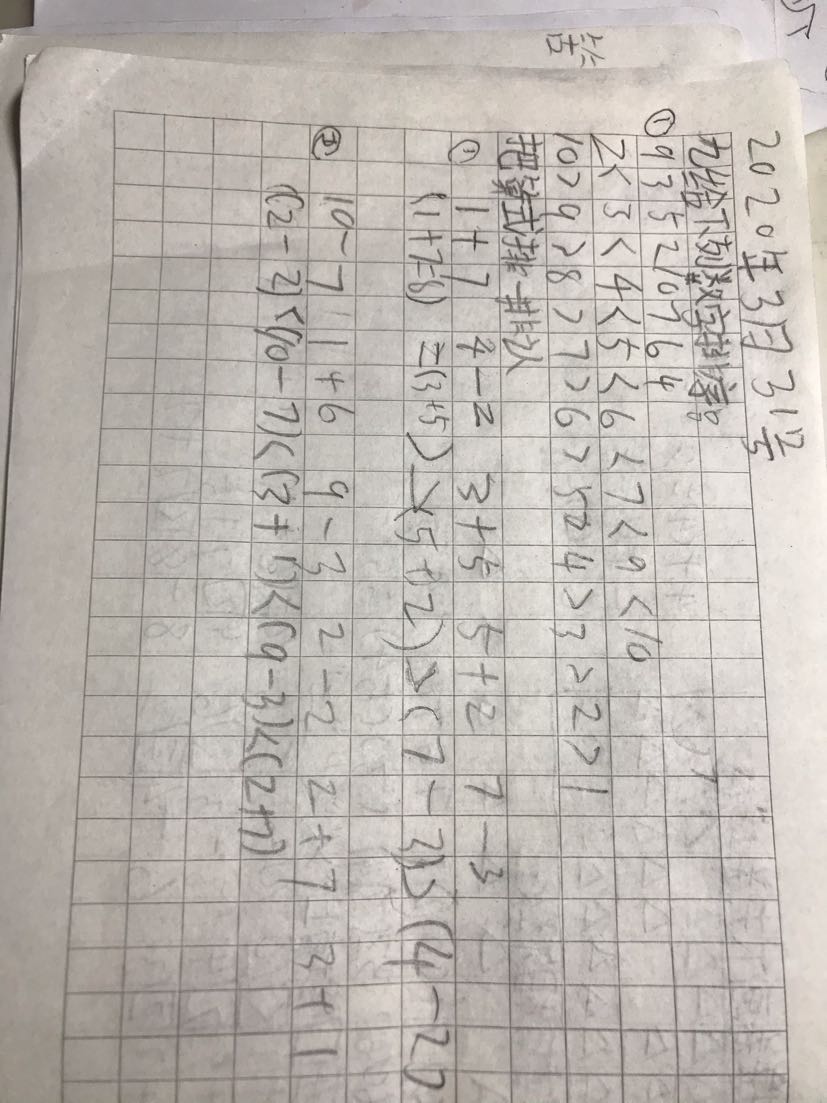 2020年3月31号
九、给下列数字排序。
① 9 3 5 2 10 7 6 4
2<3<4<5<6<7<9<10
10>9>8>7>6>5>4>3>2>1
把算式排一排队
① 1+7 4-2 3+5 5+2 7-3
(1+7=8)=(3+5)>(5+2)>(7-3)>(4-2)
② 10-7 1+6 9-3 2-2 2+7 3+1
(2-2)<(10-7)<(3+1)<(9-3)<(2+7)